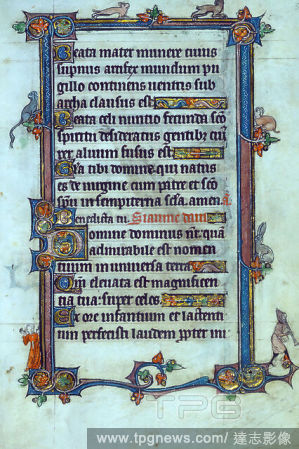 Beata mater munere cuius
supnus artifex mundum pu
gillo continens ventris sub
archa clausus est
Beata celi nuntio fecunda sco
spiritu desideratus gentibz cui
per alvum fusus est
Gla tibi domine qui natus
es de virgine cum patre et sco
spu in sempiterna scla. amen.
Benedicta tu.
Domine dominus nr. qua
admirabile est nomen
tuum in universa terra
Qm elevata est magnificen
tia tua: super celos
Ex ore infantium et lactenti
um perfecisti laudem propter ini
TPG
www.tpgnews.com/ 達志影像